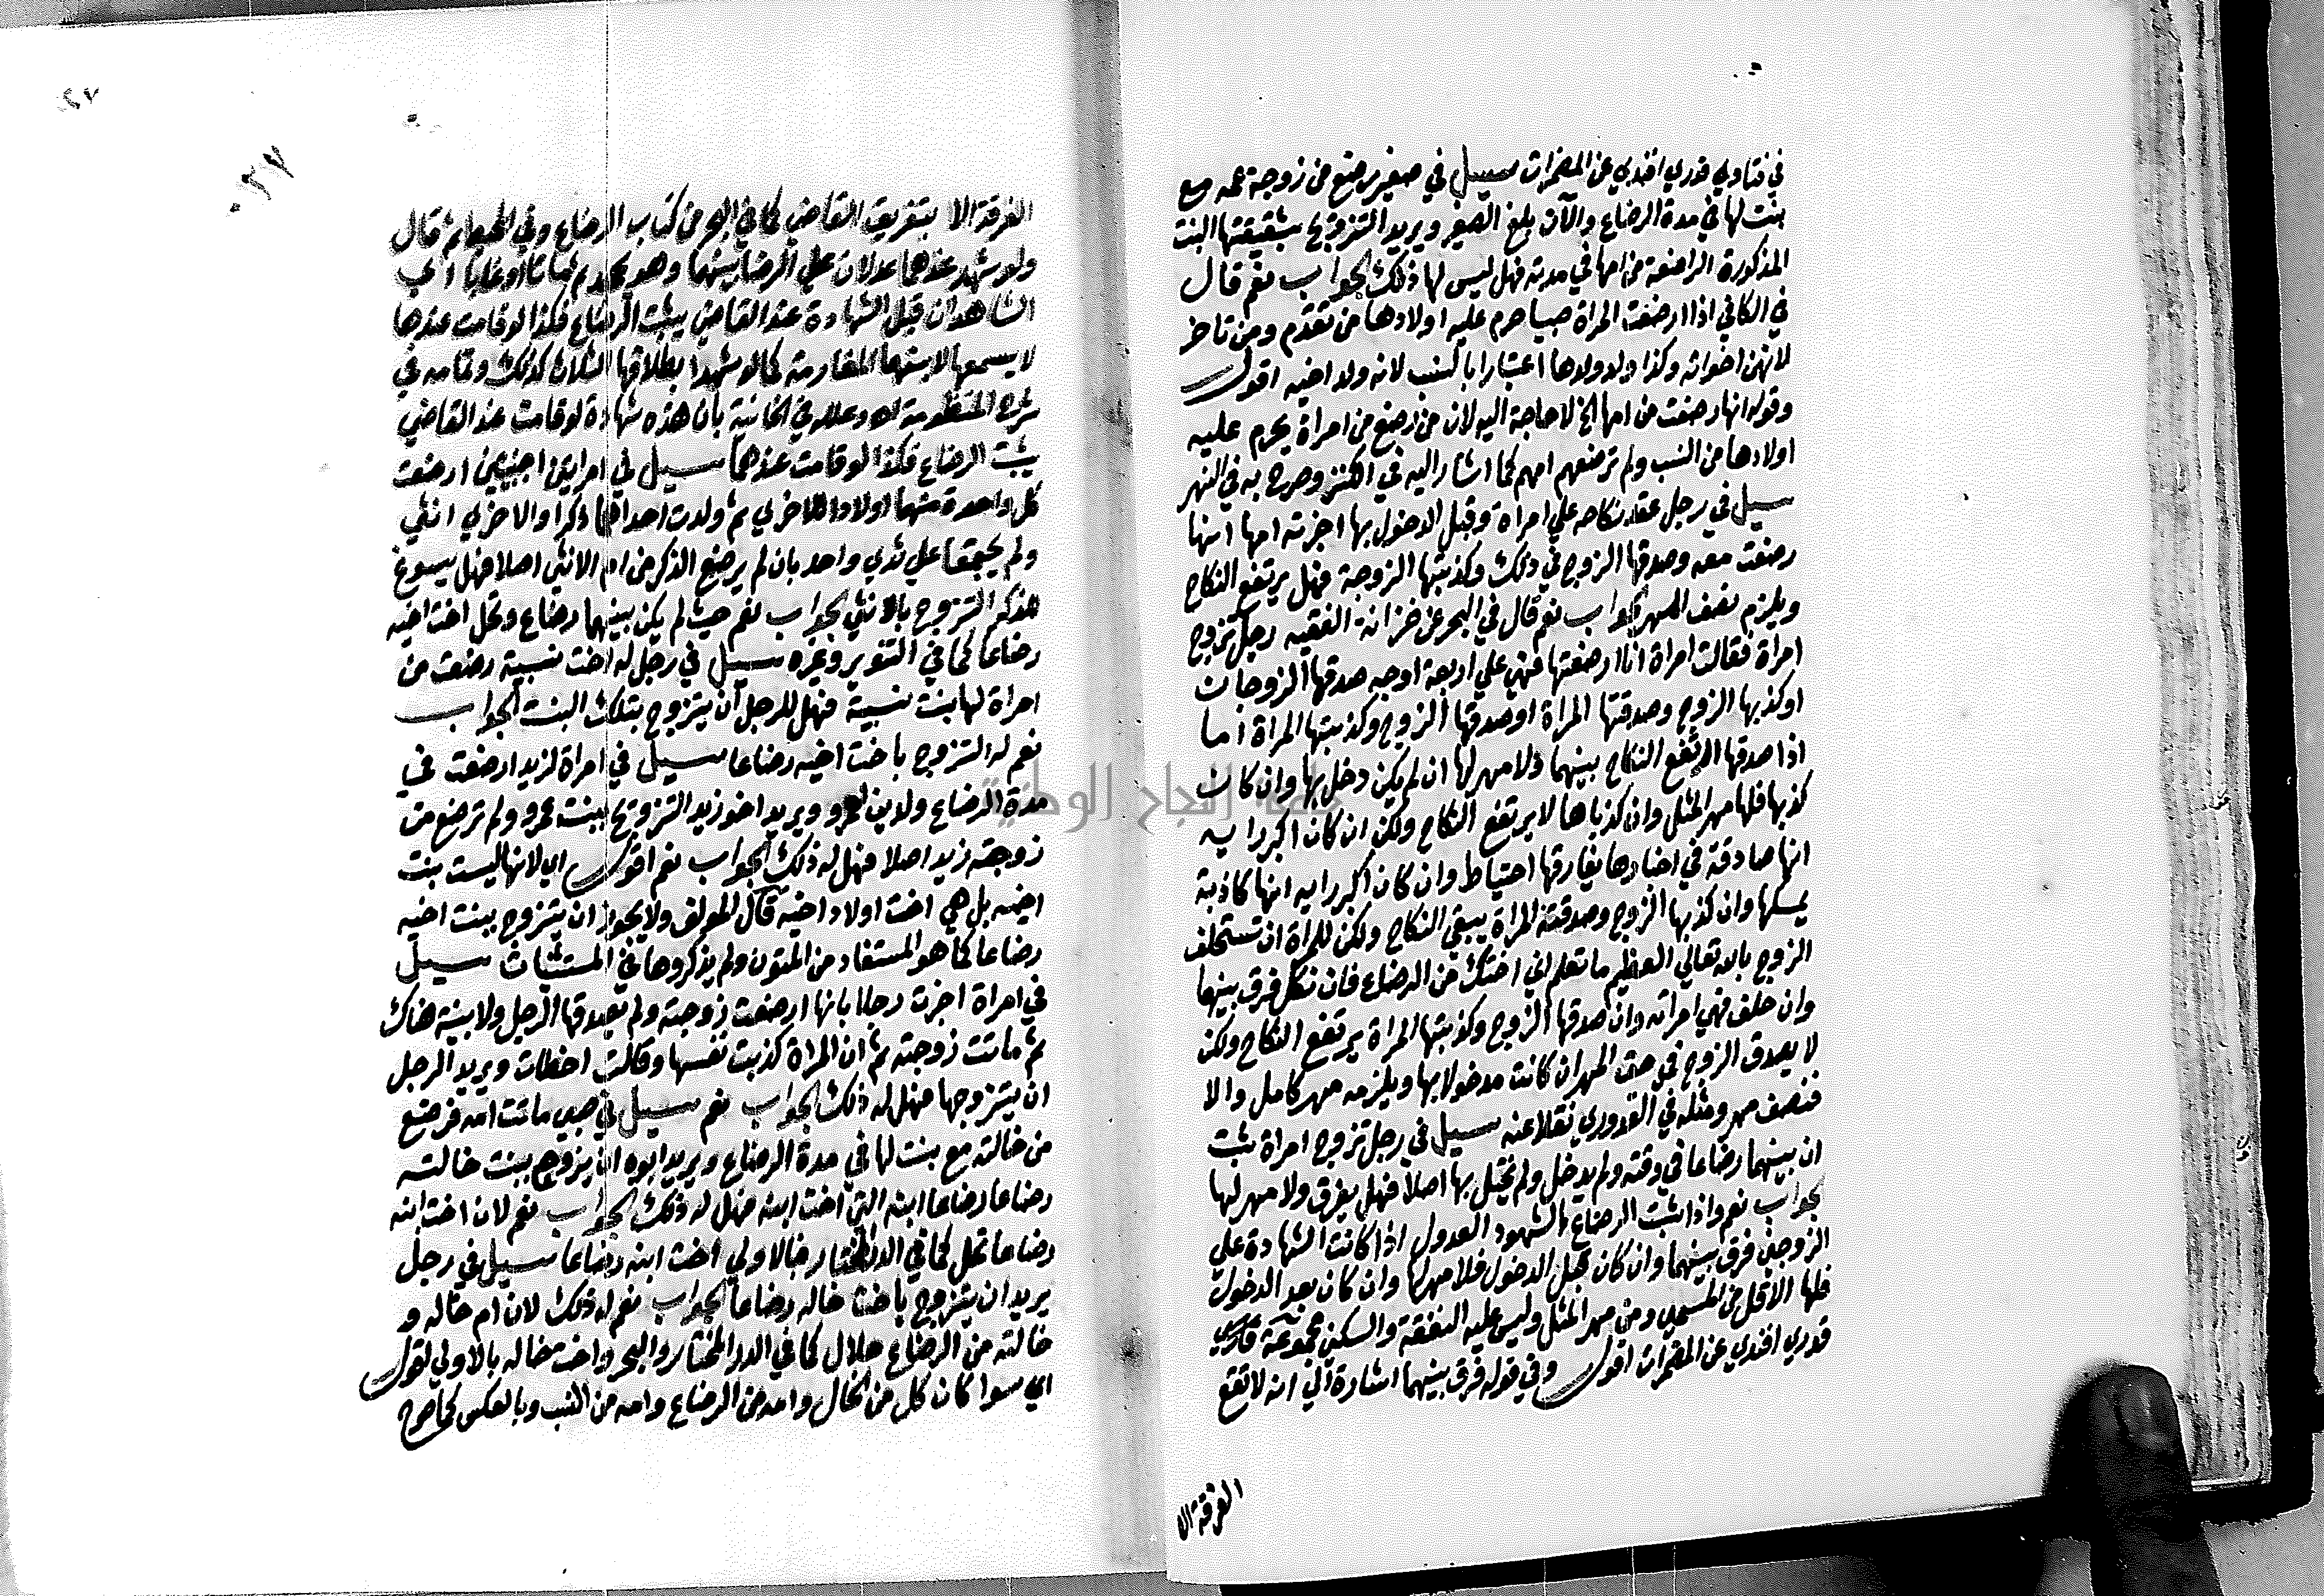 في فتاوي قدري افندي عن المضمرات سيل في صغير رضع من زوجة عمه مع
بنت لها في مدة الرضاع والآن بلغ الصغير ويريد التزويج بشقيقتها البنت
المذكورة الراضعة من امها في مدته فهل ليس لها ذلك الجواب نعم قال
في الكافي اذا ارضعت المراة صبيا حرم عليه اولادها من تقدم ومن تاخر
لانهن اخواته وكذا ولد ولدها اعتبارا بالنسب لانه ولد اخيه اقول
وقوله انها رضعت من امها الخ لا حاجة اليه لان من رضع من امراة يحرم عليه
اولادها من النسب ولم ترضعهم امهم كما اشار اليه في الكنز وصرح به في النهر
سيل في رجل عقد نكاحه علي امراة وقبل الدخول بها اخبرته امها انها
رضعت معه وصدقها الزوج في ذلك وكذبتها الزوجة فهل يرتفع النكاح
ويلزم نصف المهر الجواب نعم قال في البحر عن خزانة الفقيه رجل تزوج
امراة فقالت امراة انا ارضعتها فهي علي اربعة اوجه صدقها الزوجان
او كذبها الزوج وصدقتها المراة او صدقها الزوج وكذبتها المراة اما
اذا صدقها ارتفع النكاح بينهما ولا مهر لها ان لم يكن دخل بها وان كان
كذبها فلها مهر المثل وان كذباها لا يرتفع النكاح ولكن ان كان اكبر رايه
انها صادقة في اخبارها يفارقها احتياط وان كان اكبر رايه انها كاذبة
يمسكها وان كذبها الزوج وصدقته المراة يبقي النكاح ولكن للمراة ان تستحلف
الزوج بالله تعالي العظيم ما تعلم اني اختك من الرضاع فان نكل فرق بينهما
وان حلف فهي امراته وان صدقها الزوج وكذبتها المراة يرتفع النكاح ولكن
لا يصدق الزوج في حق المهر ان كانت مدخولا بها ويلزمه مهر كامل والا
فنصف مهر ومثله في القدوري نقلا عنه سيل في رجل تزوج امراة ثبت
ان بينهما رضاعا في وقته ولم يدخل ولم يختل بها اصلا فهل يفرق ولا مهر لها
الجواب نعم واذا ثبت الرضاع بالشهود العدول اذا كانت الشهادة علي
الزوجين فرق بينهما وان كان قبل الدخول فلا مهر لها وان كان بعد الدخول
فلها الاقل من المسمي ومن مهر المثل وليس عليه النفقة والسكني مجموعة
قدري افندي عن المضمرات اقول وفي قوله فرق بينهما اشارة الي انه لا تقع
الفرقة الا
الفرقة الا بتفريق القاضي كما في البحر من كتاب الرضاع وفي ثم قال
ولو شهد عندها عدلان علي الرضا بينهما وهو يجحد ثم ماتا او غابا اي
الشاهدان قبل الشهادة عند القاضي يثبت الرضاع فكذا لو قامت عندها
لا يسعها الا بتها المفارمة كما لو شهدا بطلاقها الثلاث كذلك وتمامه في
شرح المنظومة له وعلله في الخانية بان هذه شهادة لو قامت عند القاضي
يثبت الرضاع فكذا لو قامت عندها سيل في امراتين اجنبيتين ارضعت
كل واحدة منهما اولاد الاخري ثم ولدت احداهما ذكرا والاخري انثي
ولم يجتمعا علي ثدي واحد بان لم يرضع الذكر من ام الانثي اصلا فهل يسوغ
للذكر التزوج بالانثي الجواب نعم حيث لم يكن بينهما رضاع وتحل اخت اخيه
رضاعا كما في التنوير وغيره سيل في رجل له اخت نسبية رضعت من
امراة لها بنت نسبية فهل للرجل ان يتزوج بتلك البنت الجواب
نعم له التزوج باخت اخيه رضاعا سيل في امراة لزيد ارضعت في
مدة الرضاع ولدين لعمرو ويريد اخو زيد التزويج ببنت عمرو ولم ترضع من
زوجة زيد اصلا فهل له ذلك الجواب نعم اقول اي لانها ليست بنت
اخيه بل هي اخت اولاد اخيه قال المولف ولا يجوز ان يتزوج ببنت اخيه
رضاعا كما هو المستفاد من المتون ولم يذكروها في المستثنيات سيل
في امراة اخبرت رجلا بانها ارضعت زوجته ولم يصدقها الرجل ولا بينة هناك
ثم ماتت زوجته ثم ان المراة كذبت نفسها وقالت اخطات ويريد الرجل
ان يتزوجها فهل له ذلك الجواب نعم سيل في صبي ماتت امه فرضع
من خالته مع بنت لها في مدة الرضاع ويريد ابوه ان يزوج ببنت خالته
رضاعا رضاعا ابنه التي اخت ابنه فهل له ذلك الجواب نعم لان اخت ابنه
رضاعا تحل كما في الدر المختار فبالاولي اخت ابنه رضاعا سيل في رجل
يريد ان يتزوج باخت خاله رضاعا الجواب نعم له ذلك لان ام خاله و
خالته من الرضاع حلال كما في الدر المختار والبحر واخت خاله بالاولي اقول
اي سوا كان كل من الخال وامه من الرضاع وامه من النسب وبالعكس كما صرح
جامعة النجاح الوطنية